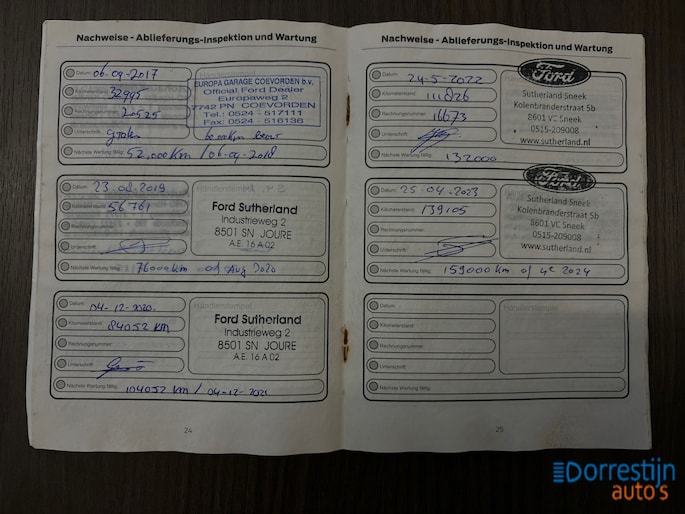 Nachweise - Ablieferungs-Inspektion und Wartung
Datum: 06-09-2017
Kilometerstand: 32995
Rechnungsnummer: 20525
Unterschrift:
Nächste Wartung fällig: 52.000km / 06-09-2018
EUROPA GARAGE COEVORDEN b.v.
Official Ford Dealer
Europaweg 2
7742 PN COEVORDEN
Tel.: 0524 - 517111
Fax: 0524 - 516136
Datum: 23.08.2019
Kilometerstand: 56761
Rechnungsnummer:
Unterschrift:
Nächste Wartung fällig: 76000km od Aug 2020
Händlerstempel
Ford Sutherland
Industrieweg 2
8501 SN JOURE
A.E. 16 A 02
Datum: 04-12-2020.
Kilometerstand: 84052 KM
Rechnungsnummer:
Unterschrift:
Nächste Wartung fällig: 104052 KM / 04-12-2021
Händlerstempel
Ford Sutherland
Industrieweg 2
8501 SN JOURE
A.E. 16 A 02
24
Nachweise - Ablieferungs-Inspektion und Wartung
Datum: 24-5-2022
Kilometerstand: 111826
Rechnungsnummer: 16673
Unterschrift:
Nächste Wartung fällig: 132000
Ford
Sutherland Sneek
Kolenbranderstraat 5b
8601 VC Sneek
0515-209008
www.sutherland.nl
Datum: 25-04-2023
Kilometerstand: 139105
Rechnungsnummer:
Unterschrift:
Nächste Wartung fällig: 159000 km of 4e 2024
Ford
Sutherland Sneek
Kolenbranderstraat 5b
8601 VC Sneek
0515-209008
www.sutherland.nl
Datum:
Kilometerstand:
Rechnungsnummer:
Unterschrift:
Nächste Wartung fällig:
Händlerstempel
25
Dorrestijn
auto's